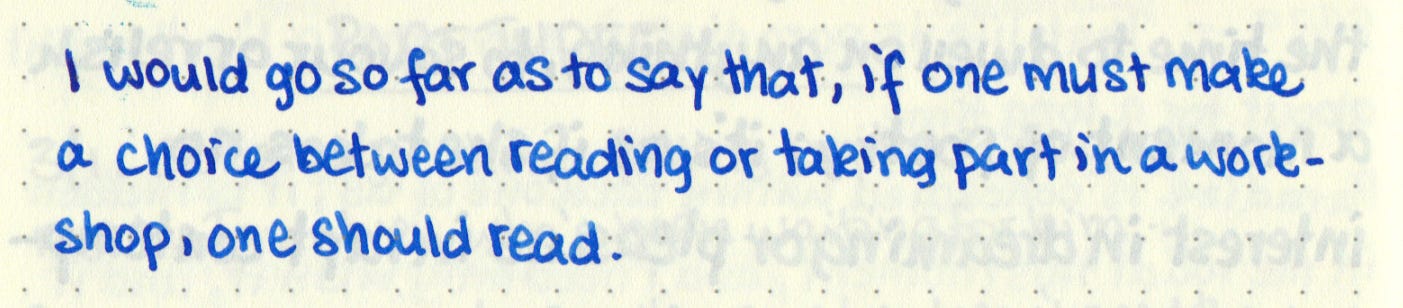 I would go so far as to say that, if one must make
a choice between reading or taking part in a work-
shop, one should read.